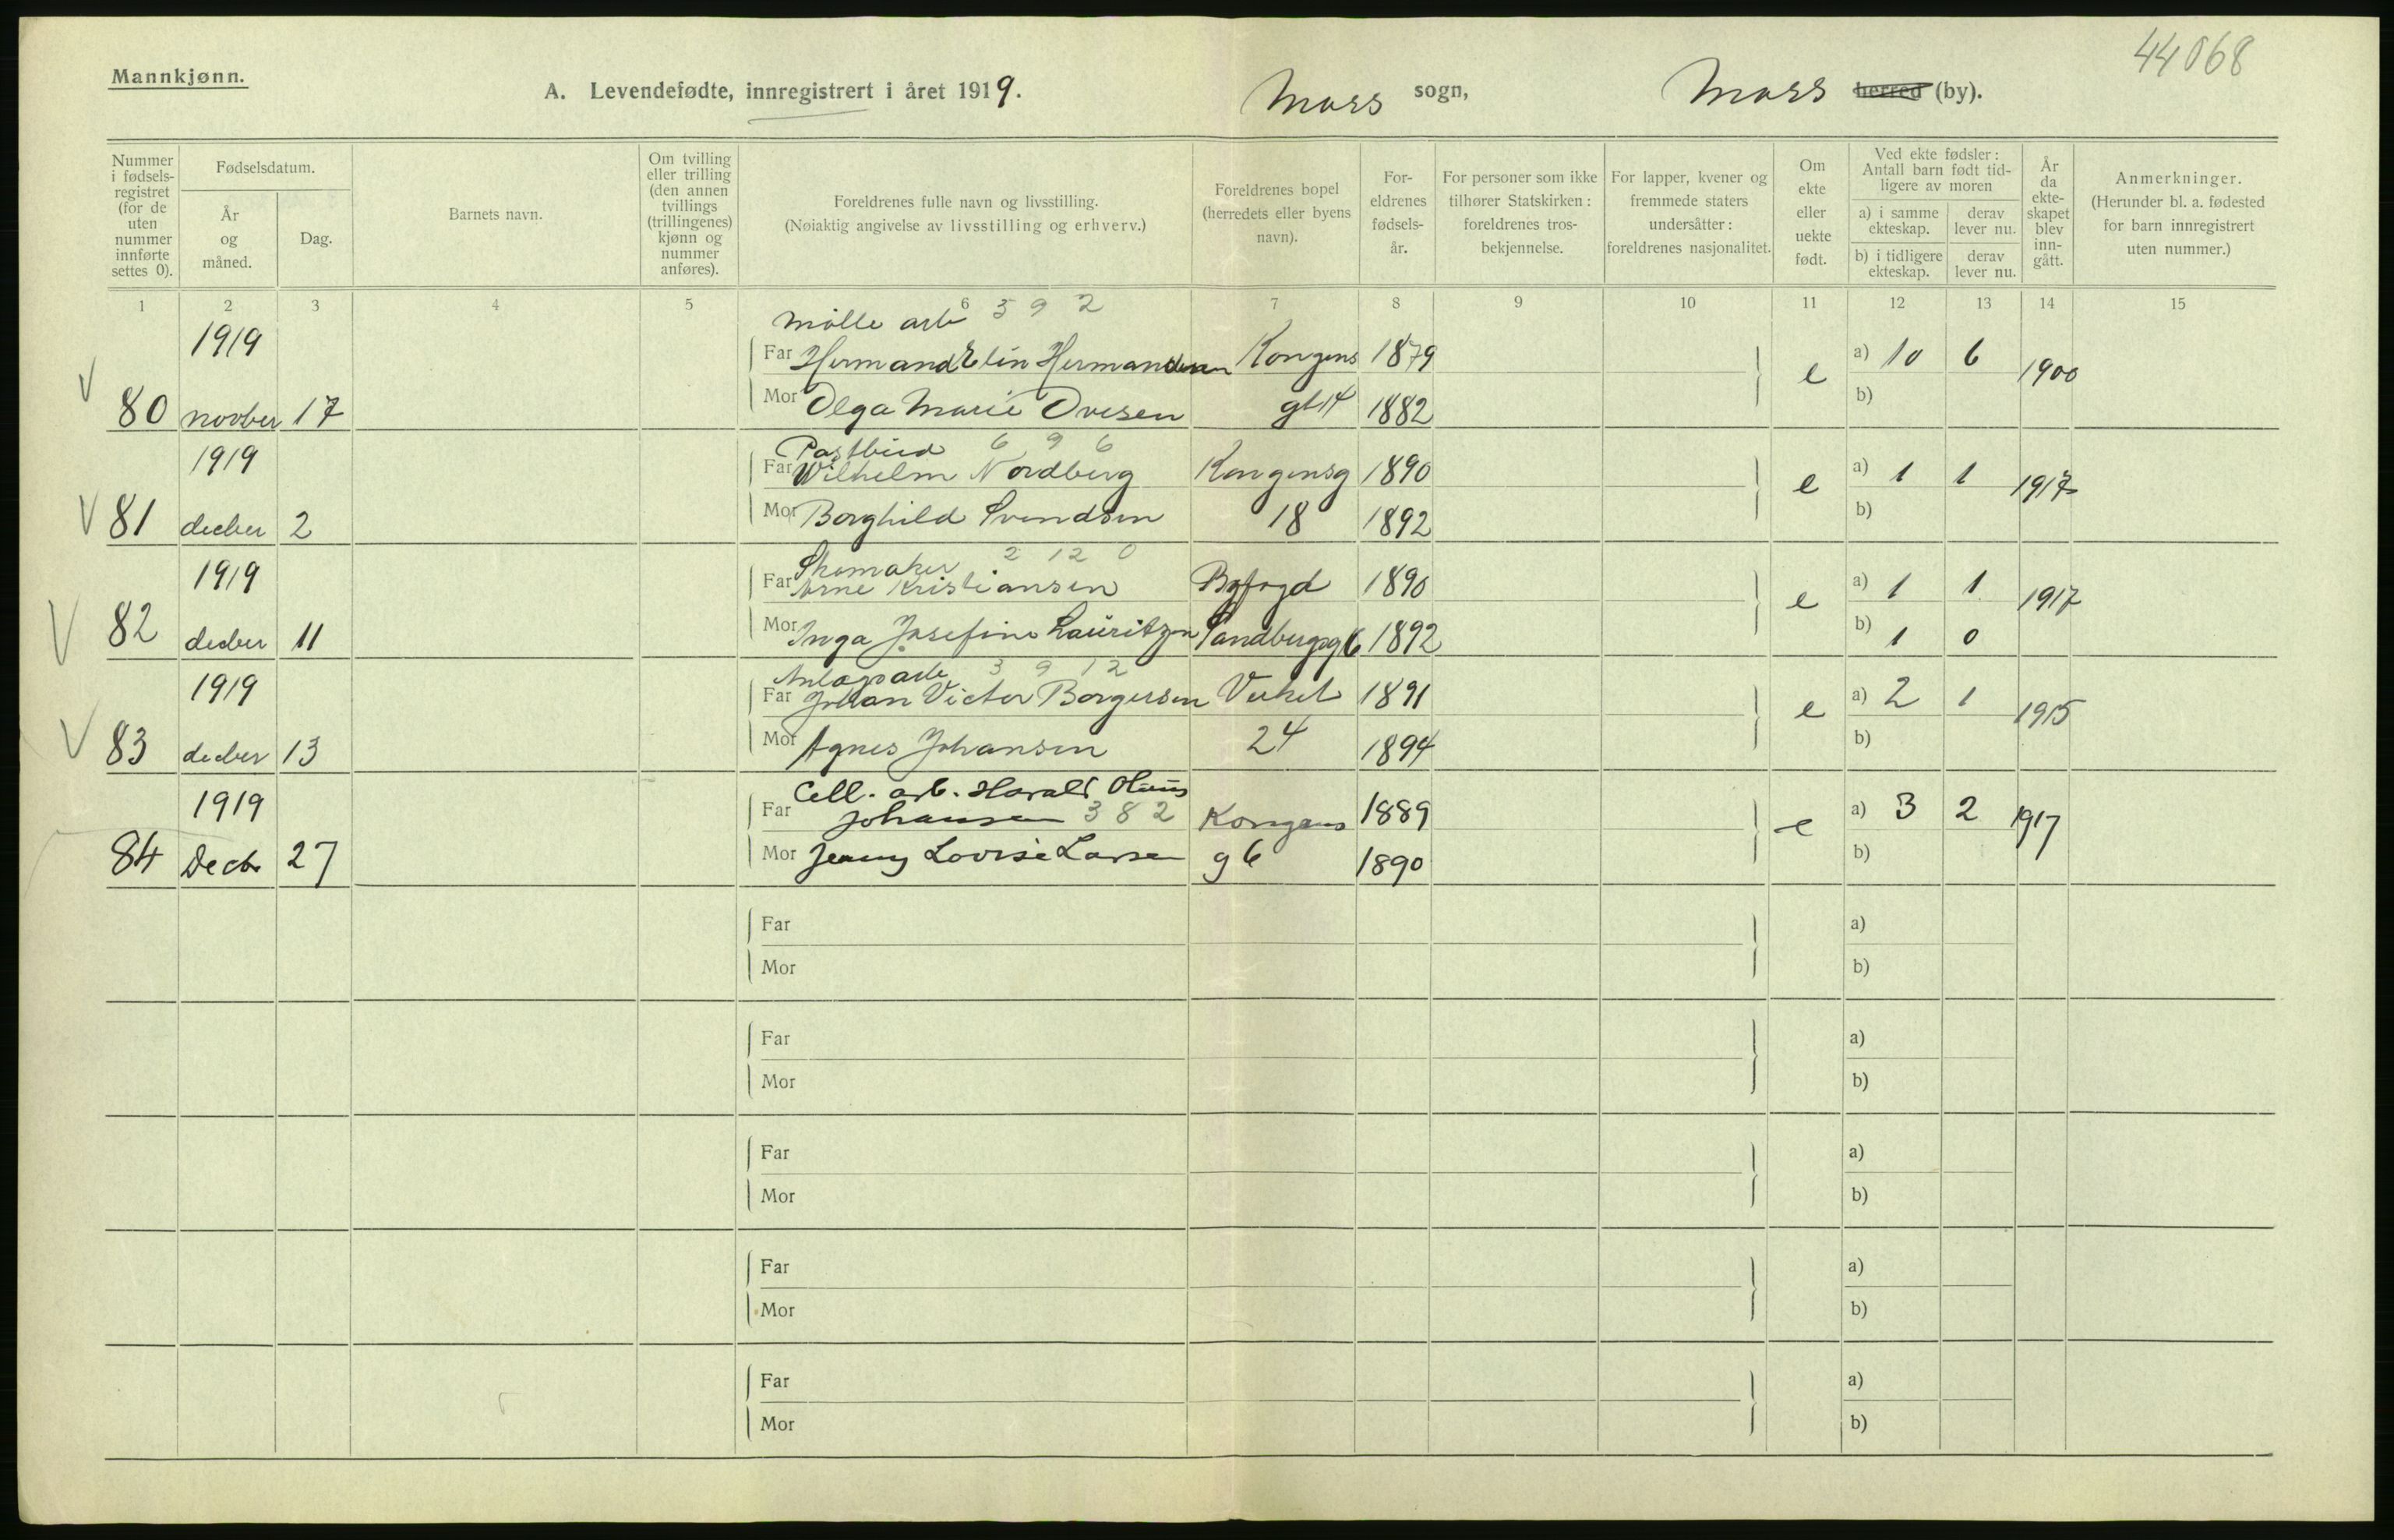 44068
Mannkjønn.
A. Levendefødte, innregistrert i året 1919.
Moss sogn,
Moss herred (by).
Nummer i fødsels-registret (for de uten nummer innførte settes 0).
Fødselsdatum.
År og måned.
Dag.
Barnets navn.
Om tvilling eller trilling (den annen tvillings (trillingenes) kjønn og nummer anføres).
Foreldrenes fulle navn og livsstilling.
(Nøiaktig angivelse av livsstilling og erhverv.)
Foreldrenes bopel (herredets eller byens navn).
For-eldrenes fødsels-år.
For personer som ikke tilhører Statskirken: foreldrenes tros-bekjennelse.
For lapper, kvener og fremmede staters undersåtter: foreldrenes nasjonalitet.
Om ekte eller uekte født.
Ved ekte fødsler: Antall barn født tid-ligere av moren
a) i samme ekteskap.
derav lever nu.
b) i tidligere ekteskap.
derav lever nu.
År da ekte-skapet blev inn-gått.
Anmerkninger.
(Herunder bl. a. fødested for barn innregistrert uten nummer.)
1 2 3 4 5 6 7 8 9 10 11 12 13 14 15
Mølle arb 3 9 2
1919 Far Hermand Elin Hermansen Kongens 1879 e a) 10 6 1900
80 novber 17 Mor Olga Marie Ovesen gt 14 1882 b)
Postbud 6 9 6
1919 Far Wilhelm Nordberg Kongensg 1890 e a) 1 1 1917
81 decber 2 Mor Borghild Svendsen 18 1892 b)
Skomaker 2 12 0
1919 Far Arne Kristiansen Byfogd 1890 e a) 1 1 1917
82 decber 11 Mor Inga Josefine Lauritzen Sandbergsg 6 1892 b) 1 0
Anlægsarb 3 9 12
1919 Far Johan Victor Borgersen Verket 1891 e a) 2 1 1915
83 decber 13 Mor Agnes Johansen 24 1894 b)
Cell. arb. Harald Olaus
1919 Far Johansen 3 8 2 Kongens 1889 e a) 3 2 1917
84 Decbr 27 Mor Jenny Lovise Larsen g 6 1890 b)
Far a)
Mor b)
Far a)
Mor b)
Far a)
Mor b)
Far a)
Mor b)
Far a)
Mor b)